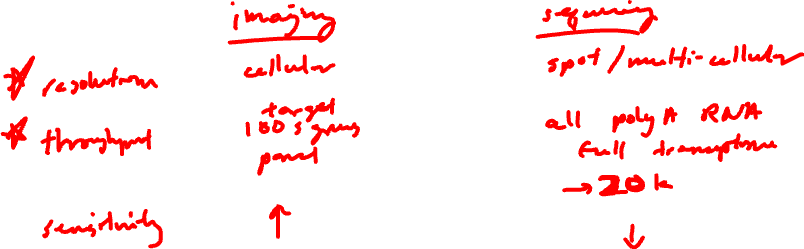 imaging
sequencing
resolution
cellular
spot/multi-cellular
throughput
target
100s genes
panel
all polyA RNA
full transcriptome
→ 20k
sensitivity
↑
↓